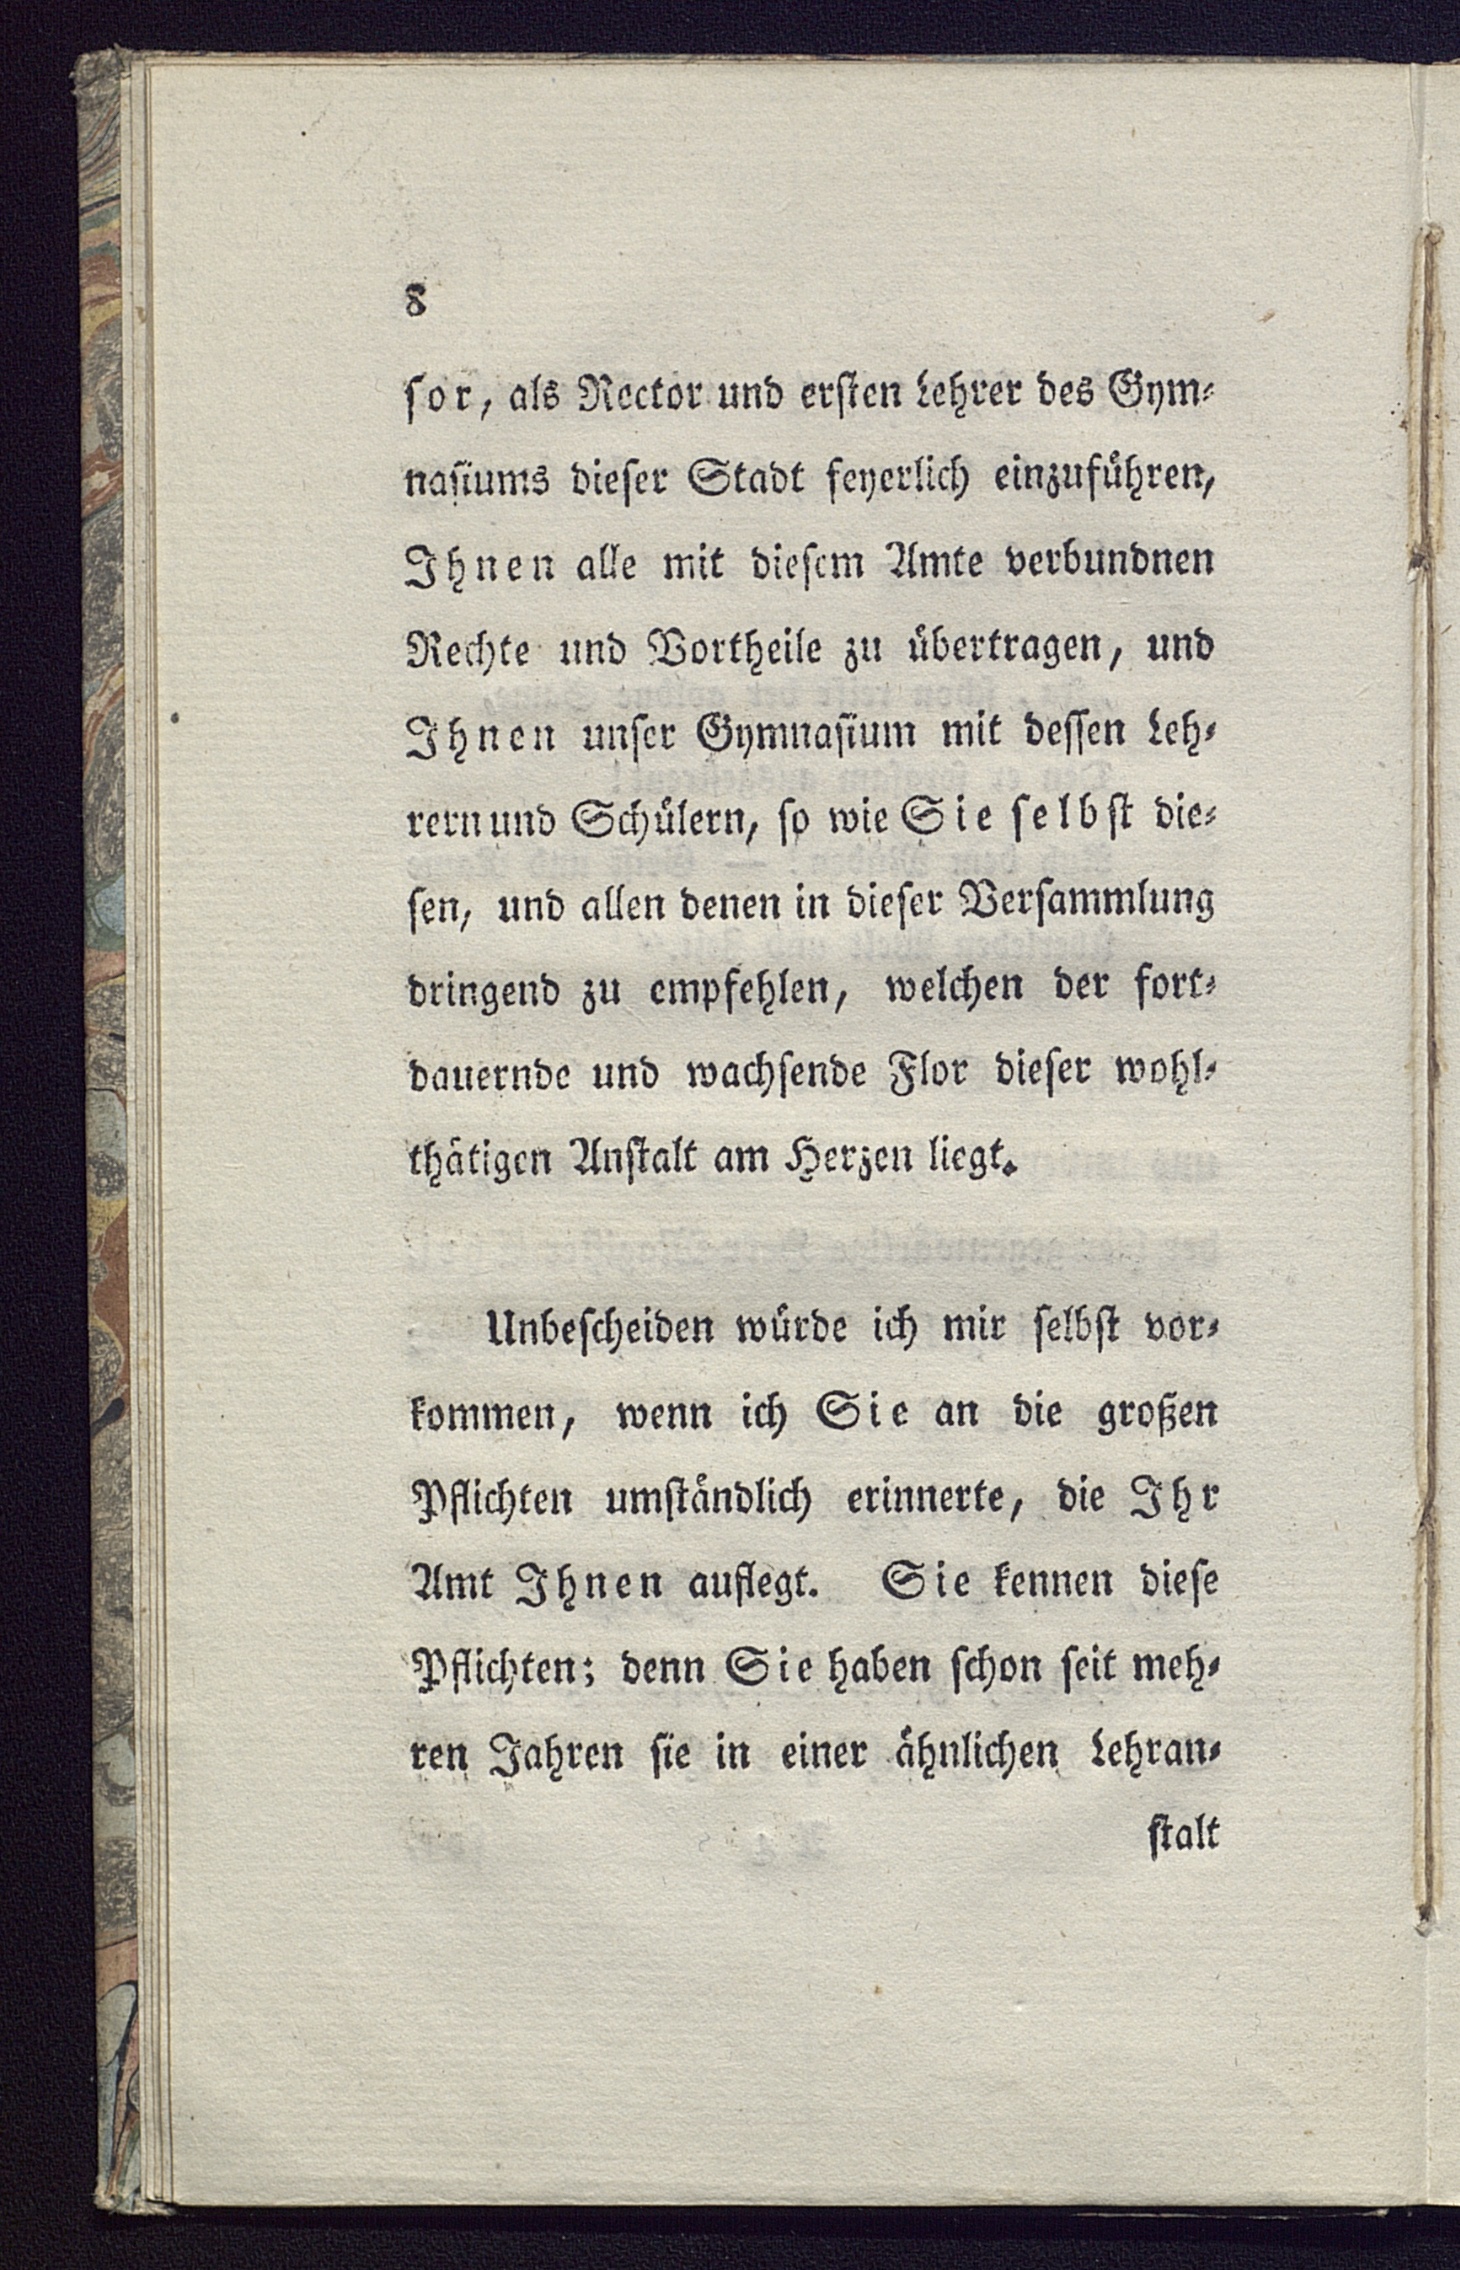 8
ſor, als Rector und erſten Lehrer des Gym⸗
naſiums dieſer Stadt feyerlich einzuführen,
Ihnen alle mit dieſem Amte verbundnen
Rechte und Vortheile zu übertragen, und
Ihnen unſer Gymnaſium mit deſſen Leh⸗
rern und Schülern, ſo wie Sie ſelbſt die⸗
ſen, und allen denen in dieſer Verſammlung
dringend zu empfehlen, welchen der fort⸗
dauernde und wachſende Flor dieſer wohl⸗
thätigen Anſtalt am Herzen liegt.
Unbeſcheiden würde ich mir ſelbſt vor⸗
kommen, wenn ich Sie an die großen
Pflichten umſtändlich erinnerte, die Ihr
Amt Ihnen auflegt. Sie kennen dieſe
Pflichten; denn Sie haben ſchon ſeit meh⸗
ren Jahren ſie in einer ähnlichen Lehran⸗
ſtalt